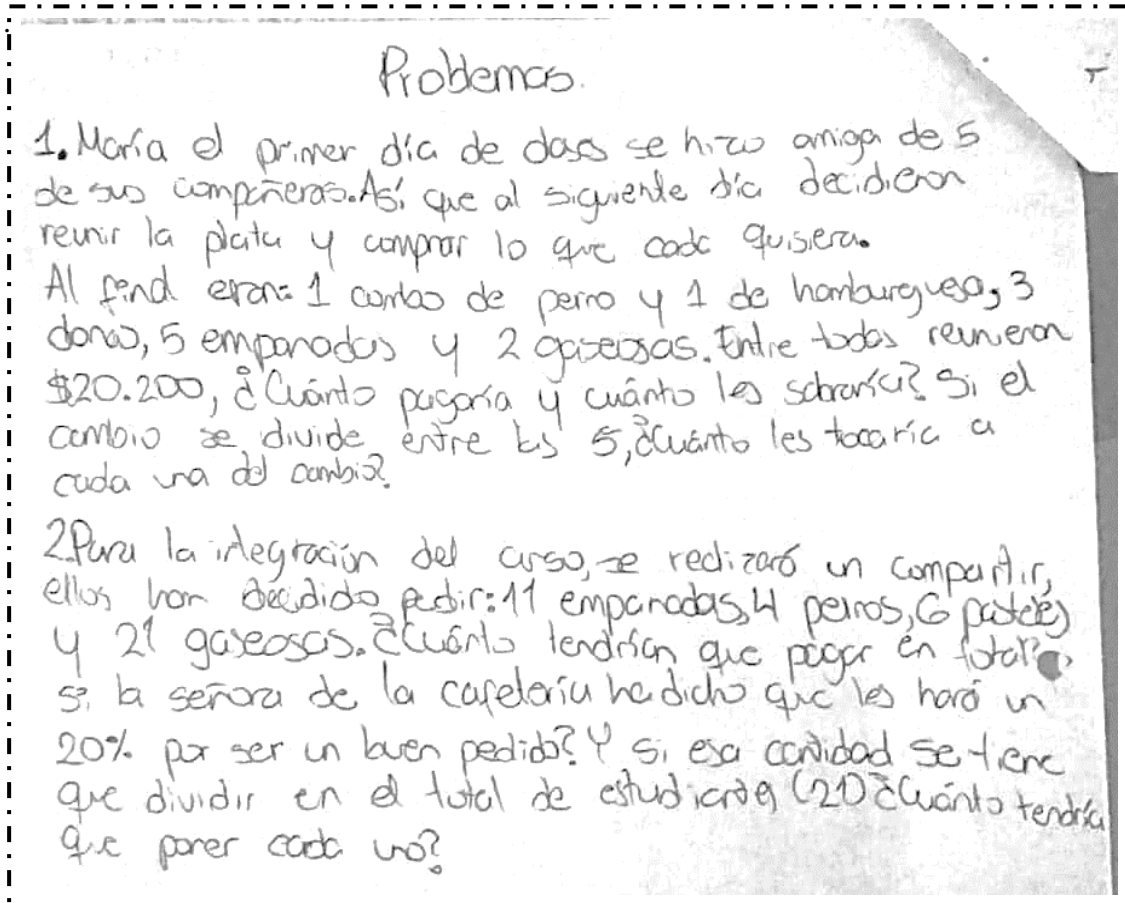 Problemas.
1. María el primer día de clases se hizo amiga de 5
de sus compañeras. Así que al siguiente día decidieron
reunir la plata y comprar lo que cada quisiera.
Al final eran: 1 combo de perro y 1 de hamburguesa, 3
donas, 5 empanadas y 2 gaseosas. Entre todas reunieron
$20.200, ¿Cuánto pagaría y cuánto les sobraría? Si el
cambio se divide entre las 5, ¿Cuánto les tocaría a
cada una del cambio?
2. Para la integración del curso, se realizaró un compartir,
ellos han decidido pedir: 11 empanadas, 4 perros, 6 pasteles
y 21 gaseosas. ¿Cuánto tendrían que pagar en total?
si la señora de la cafetería ha dicho que les hará un
20% por ser un buen pedido? Y si esa cantidad se tiene
que dividir en el total de estudiantes (21) ¿Cuánto tendría
que poner cada uno?